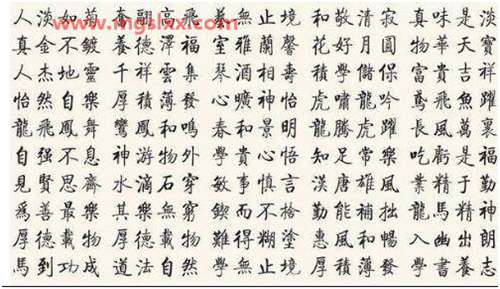 人淡如菊 翱高飛 無止境 和敬清寂 真味是淡
真金不鍍 養德澤福 室雅蘭馨 花好月圓 物華天寶
人杰地靈 千祥雲集 琴酒相壽 積學儲保 富貴吉祥
怡然自樂 厚積薄發 心曠神怡 虎嘯龍吟 鳶飛魚躍
龍飛鳳舞 鸞鳳和鳴 春和景明 龍騰虎躍 長風萬裏
自强不息 神游物外 學貴心悟 知足常樂 吃虧是福
見賢思齊 水滴石穿 敏事慎言 漢唐雄風 業精于勤
爲善最樂 其樂無窮 鍥而不捨 勤能補拙 龍馬精神
厚德載物 厚德載物 難得糊塗 惠風和暢 入幽出朗
馬到功成 道法自然 學無止境 厚積薄發 學書養志